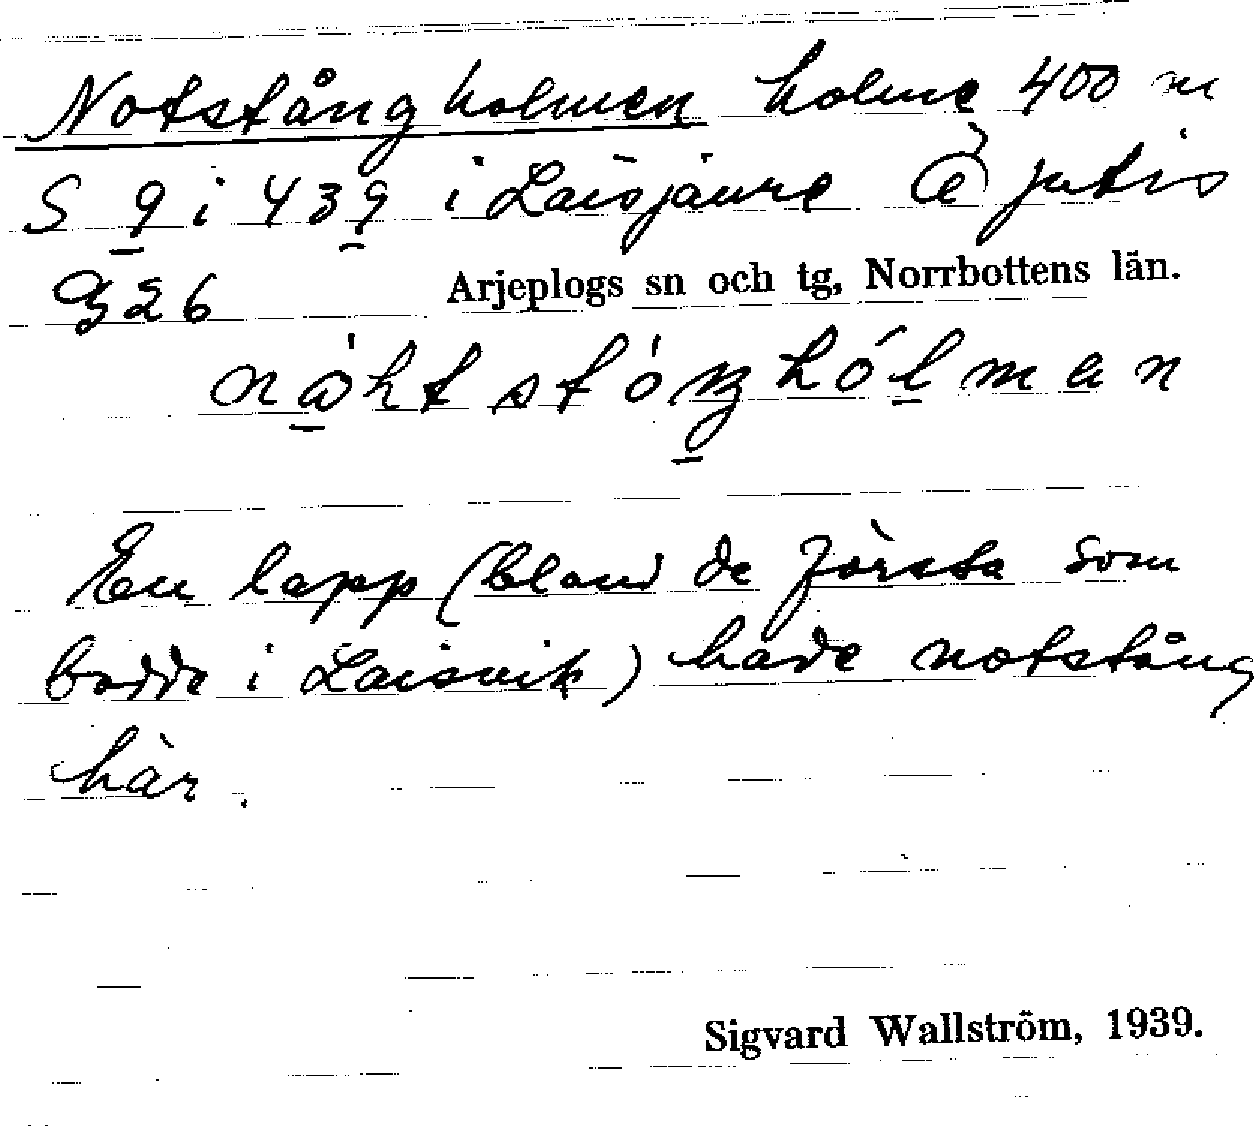 Notstångholmen holme 400 m
S 9 i 439 i Laisjaure Ö Jutis
G26 Arjeplogs sn och tg, Norrbottens län.
En lapp (bland de första som
bodde i Laisvik) hade notstång
här.
Sigvard Wallström, 1939.